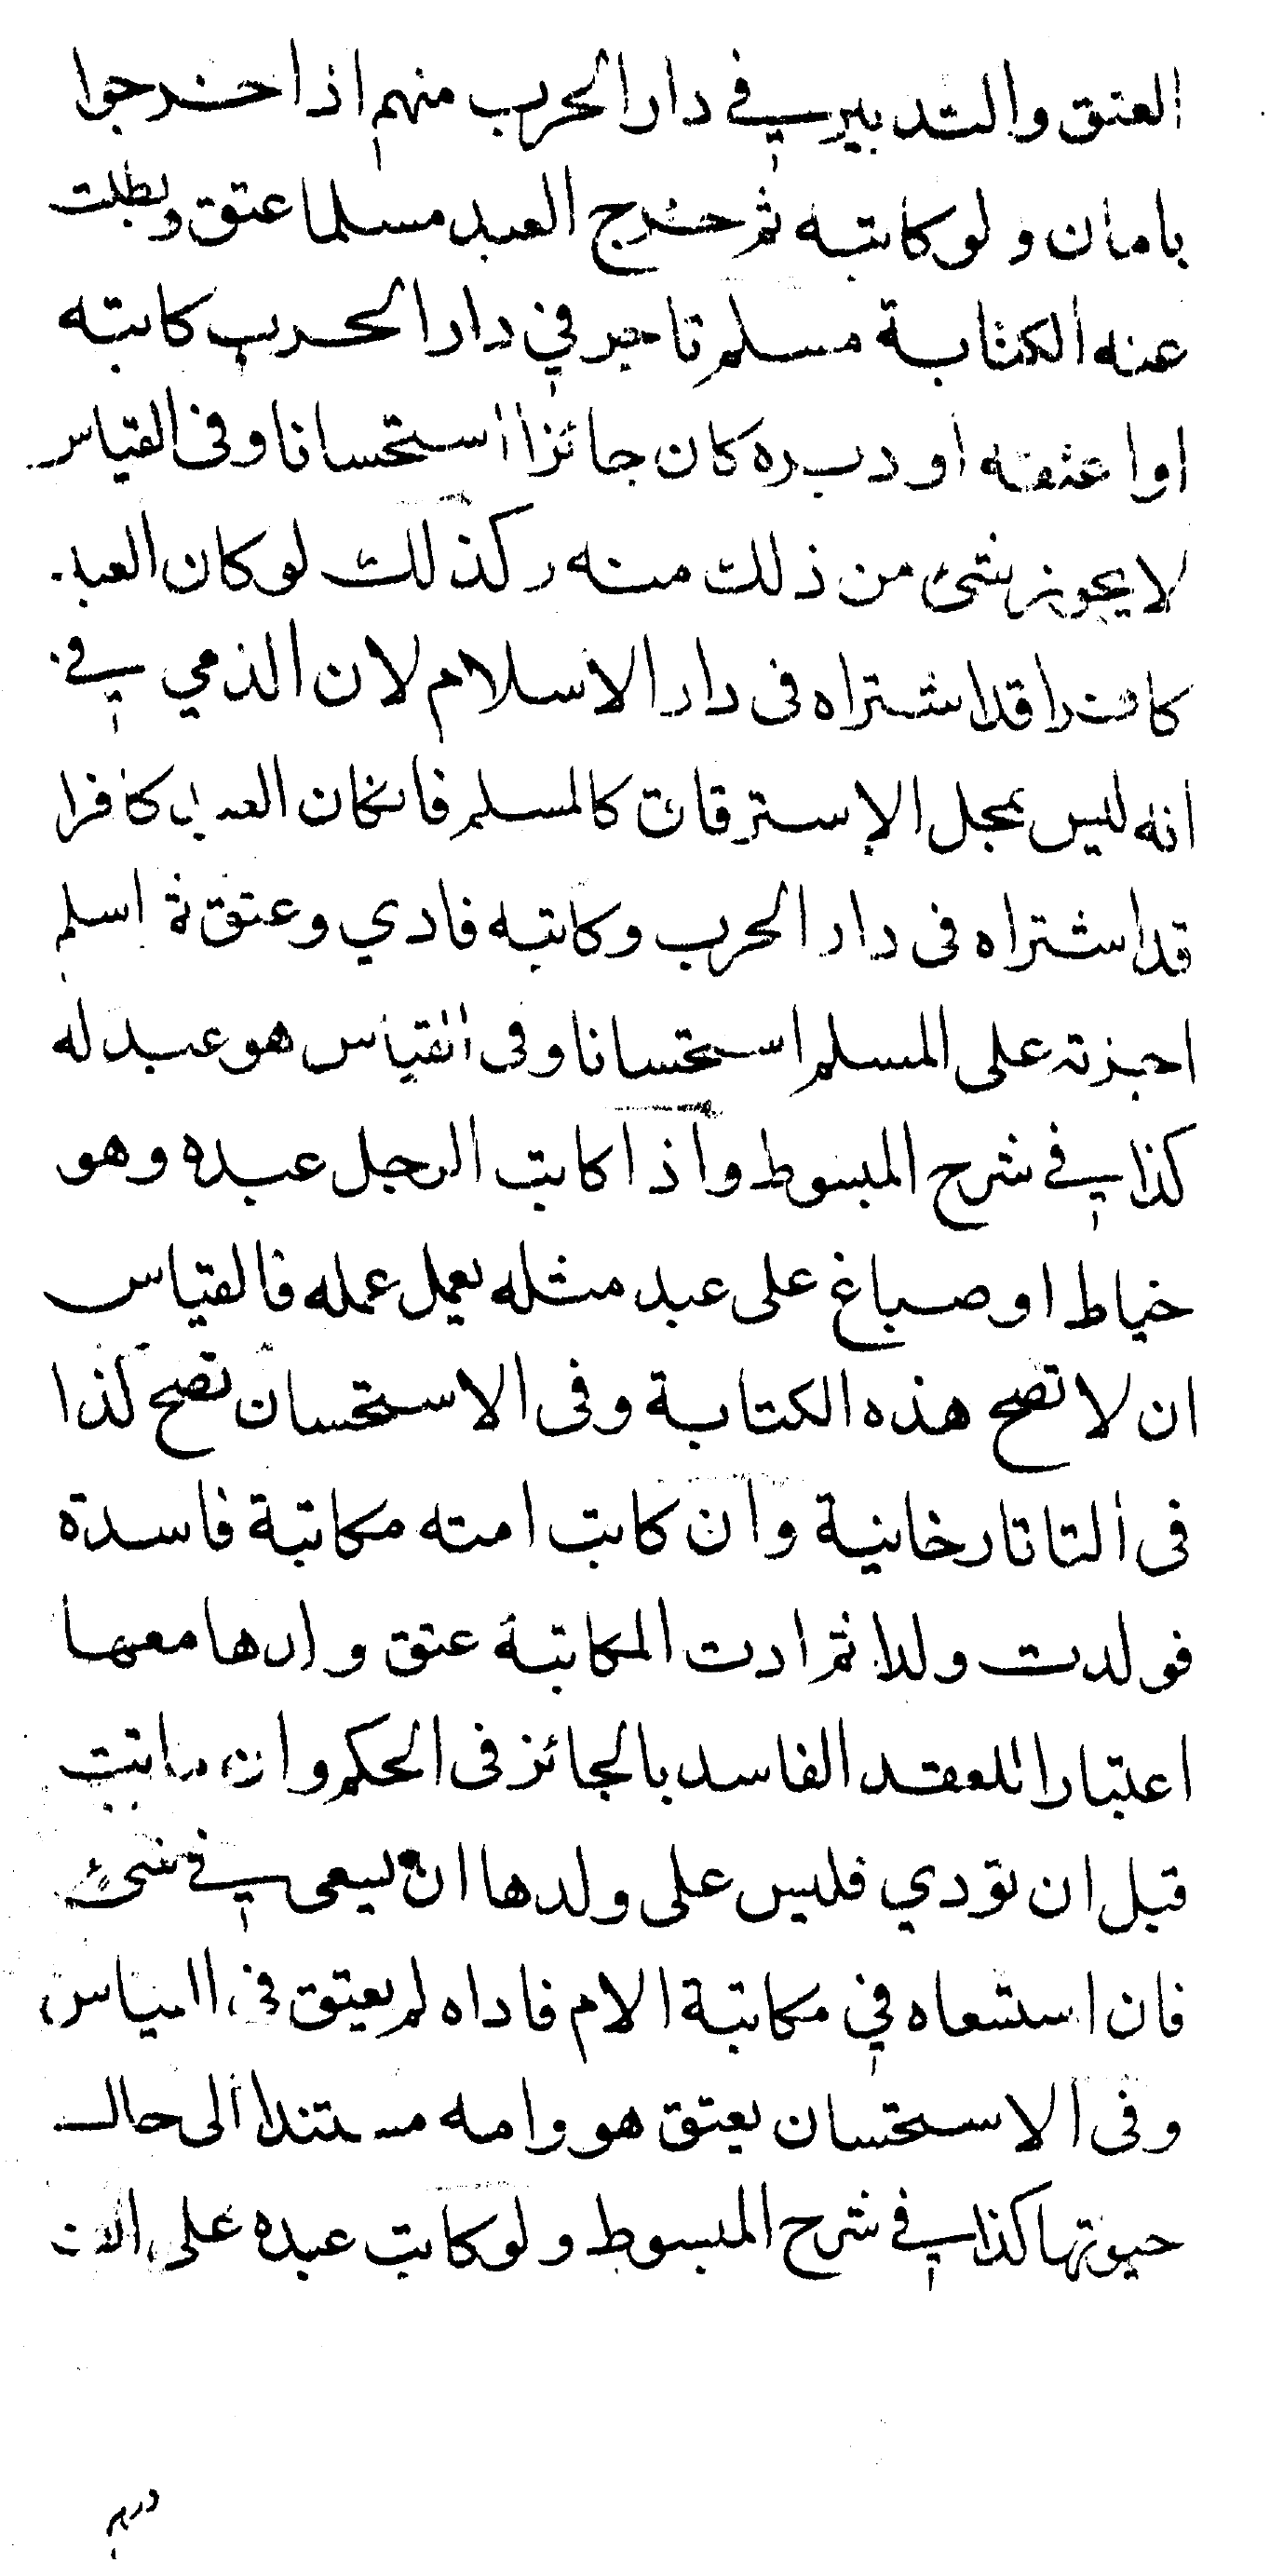 العتق والتدبير في دار الحرب منهم اذا خرجوا
بامان ولو كاتبه ثم خرج العبد مسلما عتق وبطلت
عنه الكتابة مسلم تاجر في دار الحرب كاتبه
او اعتقه او دبره كان جائزا استحسانا وفى القياس
لا يجوز شئ من ذلك منه وكذلك لو كان العبد
كافرا قد اشتراه فى دار الاسلام لان الذمي في
انه ليس بمحل الاسترقاق كالمسلم فان كان العبد كافرا
قد اشتراه فى دار الحرب وكاتبه فادي وعتق ثم اسلم
اجزته على المسلم استحسانا وفى القياس هو عبد له
كذا في شرح المبسوط واذا كاتب الرجل عبده وهو
خياط او صباغ على عبد مثله يعمل عمله فالقياس
ان لا تصح هذه الكتابة وفى الاستحسان تصح كذا
فى التاتارخانية وان كاتب امته مكاتبة فاسدة
فولدت ولدا ثم ادت المكاتبة عتق ولدها معها
اعتبارا للعقد الفاسد بالجائز فى الحكم وان ماتت
قبل ان تؤدي فليس على ولدها ان يسعى في شئ
فان استسعاه في مكاتبة الام فاداه لم يعتق في القياس
وفى الاستحسان يعتق هو وامه مستندا الى حال
حيوتها كذا في شرح المبسوط ولو كاتب عبده على الف
درهم